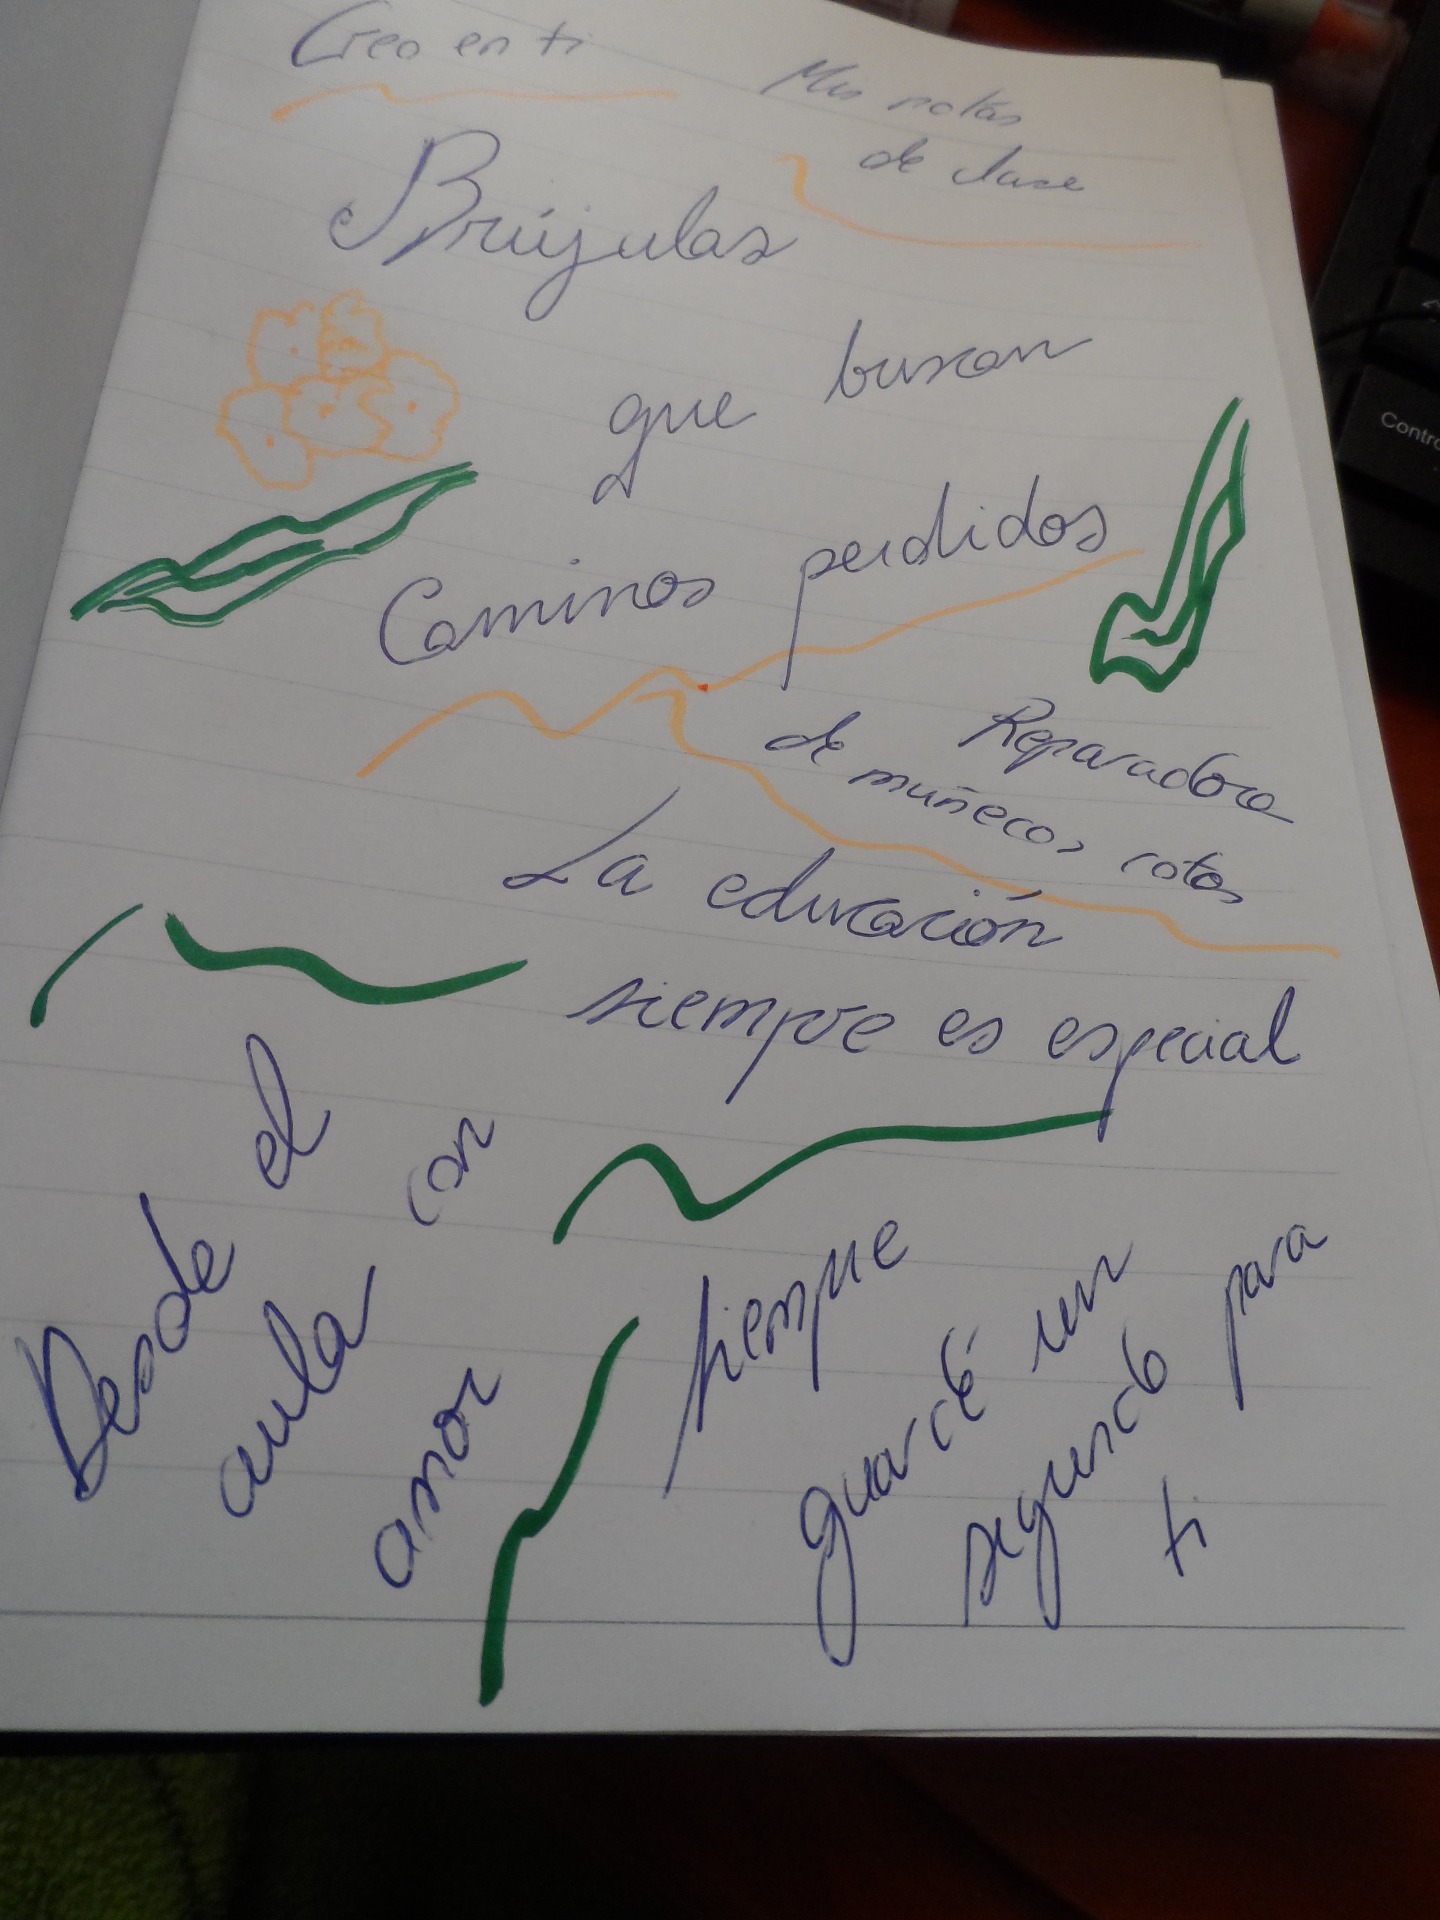 Creo en ti
Mis notas
de clase
Brújulas
que buscan
Caminos perdidos
Reparadora
de muñecos rotos
La educación
siempre es especial
Desde el
aula con
amor
siempre
guardé un
segundo para
ti
Contro